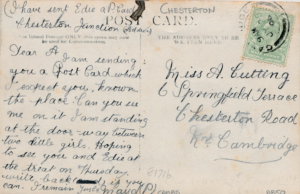 I have sent Edie a P. Card
Chesterton Junction
CHESTERTON
POST CARD.
THE ADDRESS ONLY TO BE
WRITTEN HERE
Dear A I am sending
you a Post Card which
I expect you know
the place. Can you see
me on it I am standing
at the door-way between
two little girls. Hoping
to see you and Edie at
the treat on Thursday
write back if you
can. I remain yours
Maud P
Miss A. Cutting
6 Springfield Terrace
Chesterton Road
Nr Cambridge